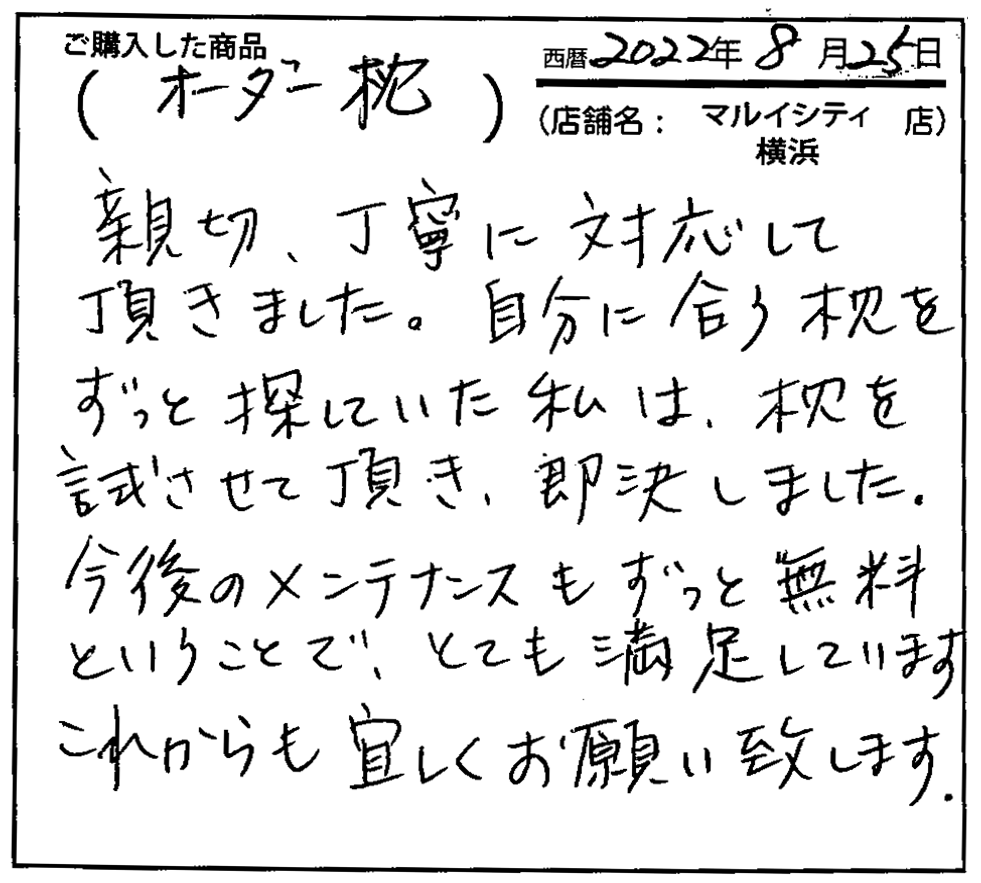 ご購入した商品
(オーダー枕)
西暦2022年8月25日
(店舗名：マルイシティ横浜店)
親切、丁寧に対応して
頂きました。自分に合う枕を
ずっと探していた私は、枕を
試させて頂き、即決しました。
今後のメンテナンスもずっと無料
ということで、とても満足しています
これからも宜しくお願い致します.